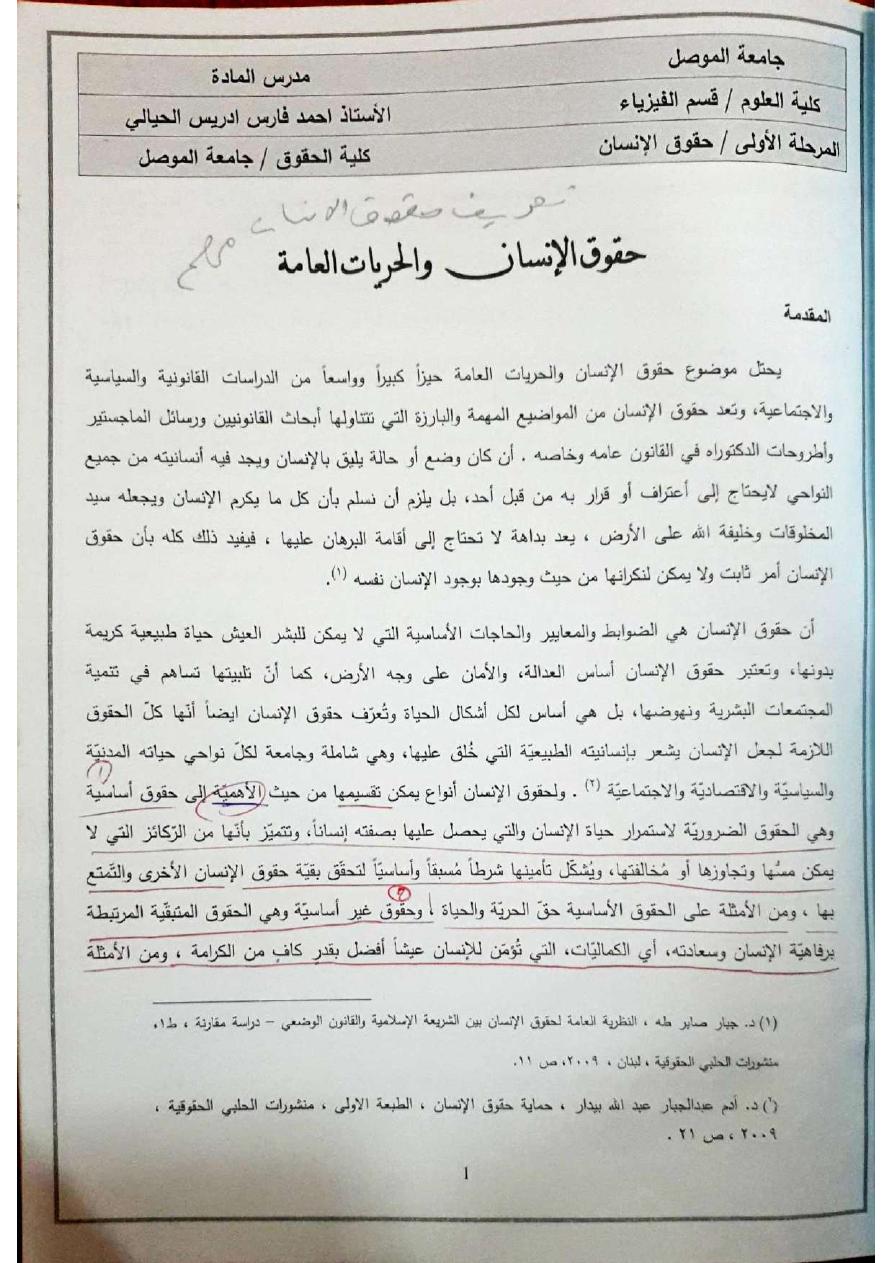 جامعة الموصل
مدرس المادة
كلية العلوم / قسم الفيزياء
الأستاذ احمد فارس ادريس الحيالي
المرحلة الأولى / حقوق الإنسان
كلية الحقوق / جامعة الموصل
تعريف حقوق الانسان
مهم
حقوق الإنسان والحريات العامة
المقدمة
يحتل موضوع حقوق الإنسان والحريات العامة حيزاً كبيراً وواسعاً من الدراسات القانونية والسياسية
والاجتماعية، وتعد حقوق الإنسان من المواضيع المهمة والبارزة التي تتناولها أبحاث القانونيين ورسائل الماجستير
وأطروحات الدكتوراه في القانون عامه وخاصه . أن كان وضع أو حالة يليق بالإنسان ويجد فيه أنسانيته من جميع
النواحي لايحتاج إلى أعتراف أو قرار به من قبل أحد، بل يلزم أن نسلم بأن كل ما يكرم الإنسان ويجعله سيد
المخلوقات وخليفة الله على الأرض ، يعد بداهة لا تحتاج إلى أقامة البرهان عليها ، فيفيد ذلك كله بأن حقوق
الإنسان أمر ثابت ولا يمكن لنكرانها من حيث وجودها بوجود الإنسان نفسه (١).
أن حقوق الإنسان هي الضوابط والمعايير والحاجات الأساسية التي لا يمكن للبشر العيش حياة طبيعية كريمة
بدونها، وتعتبر حقوق الإنسان أساس العدالة، والأمان على وجه الأرض، كما أنّ تلبيتها تساهم في تنمية
المجتمعات البشرية ونهوضها، بل هي أساس لكل أشكال الحياة وتُعرّف حقوق الإنسان ايضاً أنّها كلّ الحقوق
اللازمة لجعل الإنسان يشعر بإنسانيته الطبيعيّة التي خُلق عليها، وهي شاملة وجامعة لكلّ نواحي حياته المدنيّة
١
والسياسيّة والاقتصاديّة والاجتماعيّة (٢) . ولحقوق الإنسان أنواع يمكن تقسيمها من حيث الأهميّة إلى حقوق أساسية
وهي الحقوق الضروريّة لاستمرار حياة الإنسان والتي يحصل عليها بصفته إنساناً، وتتميّز بأنّها من الرّكائز التي لا
يمكن مسُّها وتجاوزها أو مُخالفتها، ويُشكّل تأمينها شرطاً مُسبقاً وأساسيّاً لتحقّق بقيّة حقوق الإنسان الأخرى والتّمتع
٢
بها ، ومن الأمثلة على الحقوق الأساسية حقّ الحريّة والحياة ، وحقوق غير أساسيّة وهي الحقوق المتبقّية المرتبطة
برفاهيّة الإنسان وسعادته، أي الكماليّات، التي تُؤمّن للإنسان عيشاً أفضل بقدرٍ كافٍ من الكرامة ، ومن الأمثلة
(١) د. جبار صابر طه ، النظرية العامة لحقوق الإنسان بين الشريعة الإسلامية والقانون الوضعي – دراسة مقارنة ، ط١،
منشورات الحلبي الحقوقية ، لبنان ، ٢٠٠٩، ص ١١.
(٢) د. أدم عبدالجبار عبد الله بيدار ، حماية حقوق الإنسان ، الطبعة الاولى ، منشورات الحلبي الحقوقية ،
٢٠٠٩ ، ص ٢١ .
1